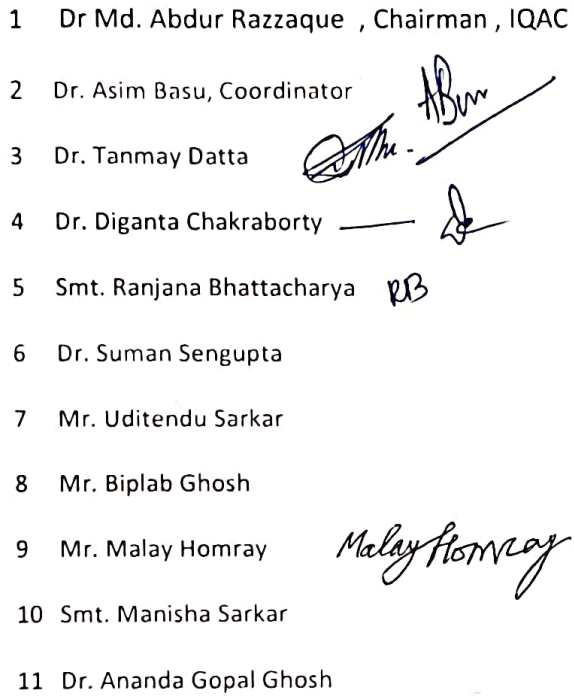 1 Dr Md. Abdur Razzaque , Chairman , IQAC
2 Dr. Asim Basu, Coordinator ABasu
3 Dr. Tanmay Datta
4 Dr. Diganta Chakraborty
5 Smt. Ranjana Bhattacharya RB
6 Dr. Suman Sengupta
7 Mr. Uditendu Sarkar
8 Mr. Biplab Ghosh
9 Mr. Malay Homray Malay Homray
10 Smt. Manisha Sarkar
11 Dr. Ananda Gopal Ghosh